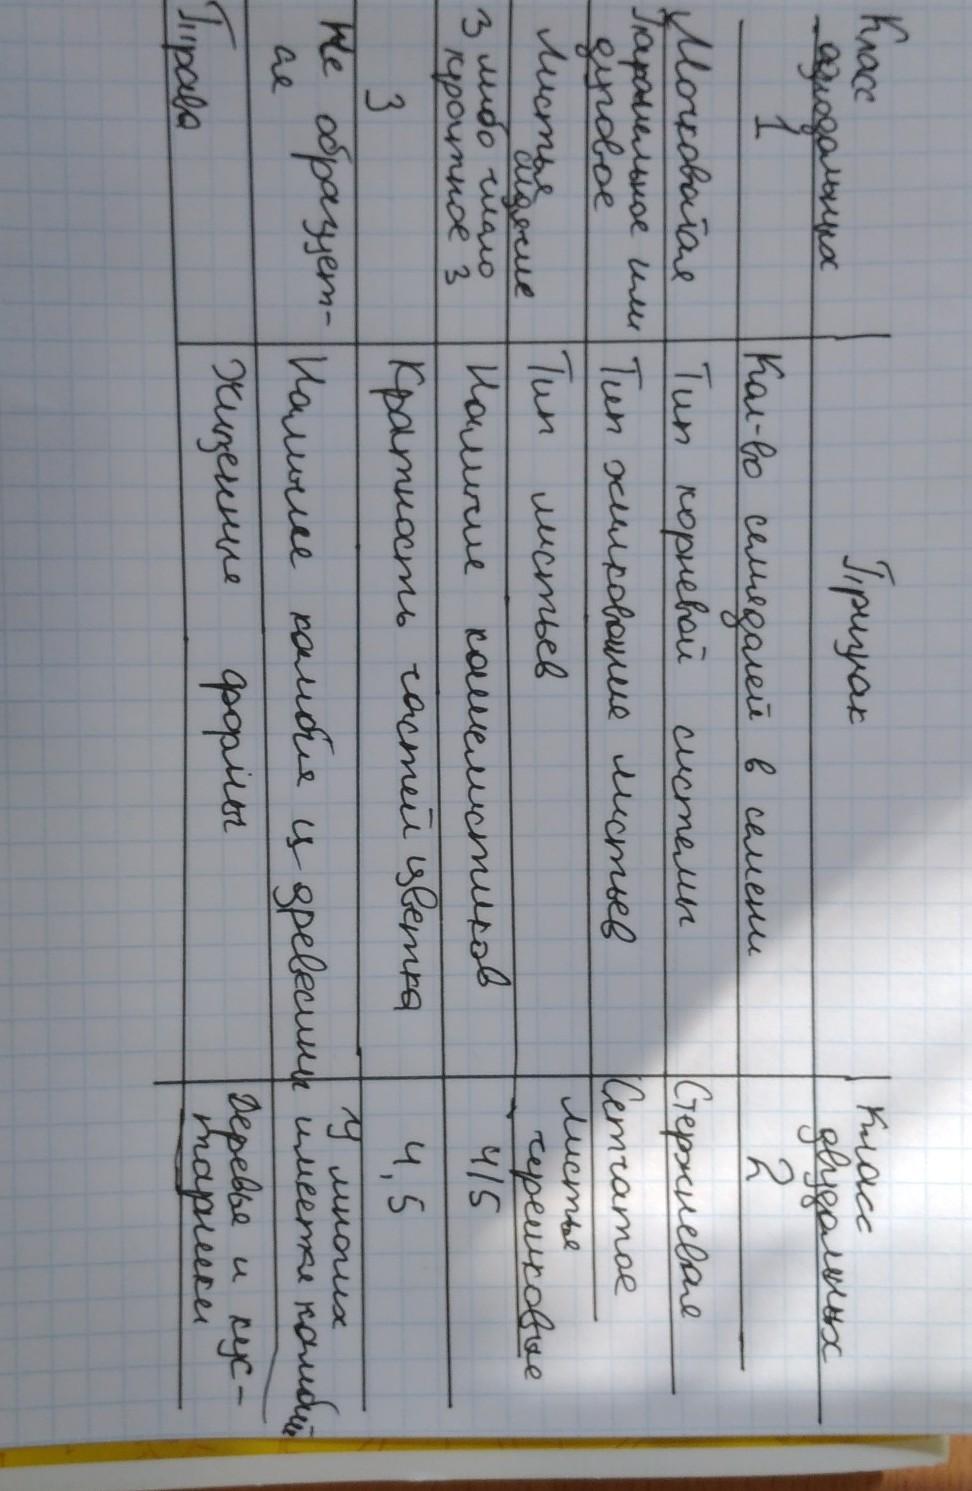 Класс
однодольных
Признак
Класс
двудольных
1
Кол-во семядолей в семени
2
Мочковатая
Тип корневой системы
Стержневая
Параленльное или
дуговое
Тип жилкование листьев
Сетчатое
Листья
сидячие
Тип листьев
Листья
черешковые
3 либо число
кратное 3
Наличие кашелистиков
4/5
3
Кратность частей цветка
4,5
Не образует-
ся
Наличее камбия из древесины
У многих
имеется камбий
Трава
Жизненные формы
Деревья и кус-
тарники